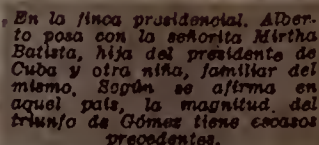 En la finca presidencial. Alber-
to posa con la señorita Mirtha
Batista, hija del presidente de
Cuba y otra niña, familiar del
mismo. Según se afirma en
aquel país, la magnitud. del
triunfo de Gómez tiene escasos
precedentes.